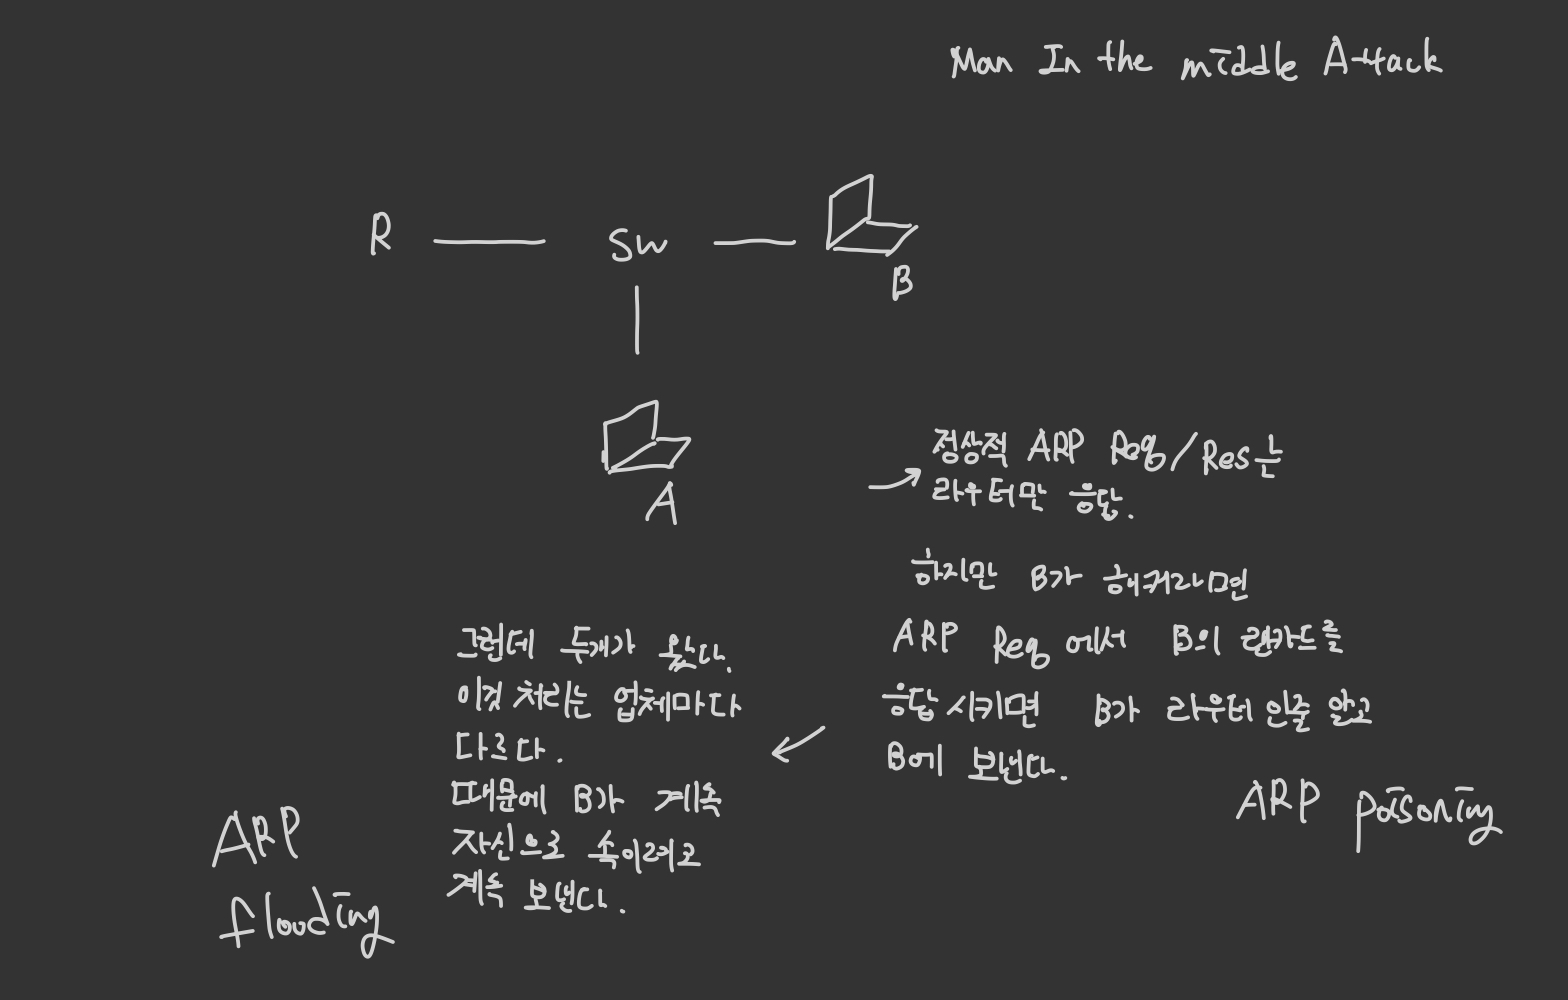 Man In the middle Attack
R
SW
B
A
정상적 ARP Req/Res는
라우터만 응답.
하지만 B가 해커라면
ARP Req에서 B의 랜카드를
응답시키면 B가 라우터인줄 알고
B에 보낸다.
ARP poisoning
그런데 두개가 왔다.
이것 처리는 업체마다
다르다.
때문에 B가 계속
자신으로 속이려고
계속 보낸다.
ARP
flooding